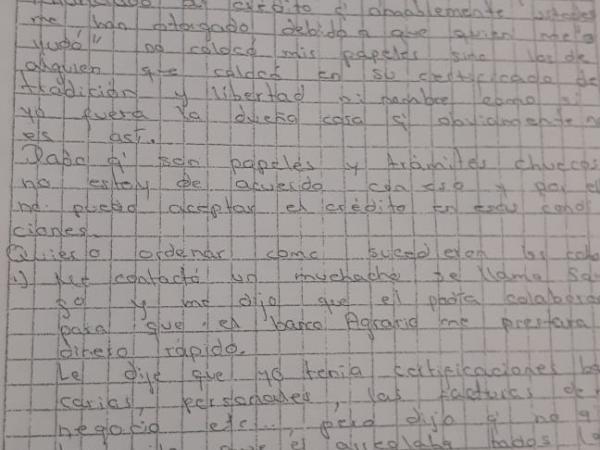 crédito q' amablemente ustedes
me han otorgado debido a que quien me a
yudó" no colocó mis papeles sino los de
alguien que colocó en su certificado de
tradición y libertad mi nombre como si
yo fuera la dueña cosa q' obviamente n
es así.
Dado q' son papeles y trámites chuecos
no estoy de acuerdo con eso y por e
no puedo aceptar el crédito en esas cond
ciones.
Quiero ordenar como sucedieron las co
1) Me contactó un muchacho se llama
y me dijo que el podía colabora
para que el banco Agrario me prestara
dinero rápido.
Le dije que yo tenía certificaciones b
carias, personales, las facturas de
negocio etc..., pero dijo q' no
el arreglaba todos